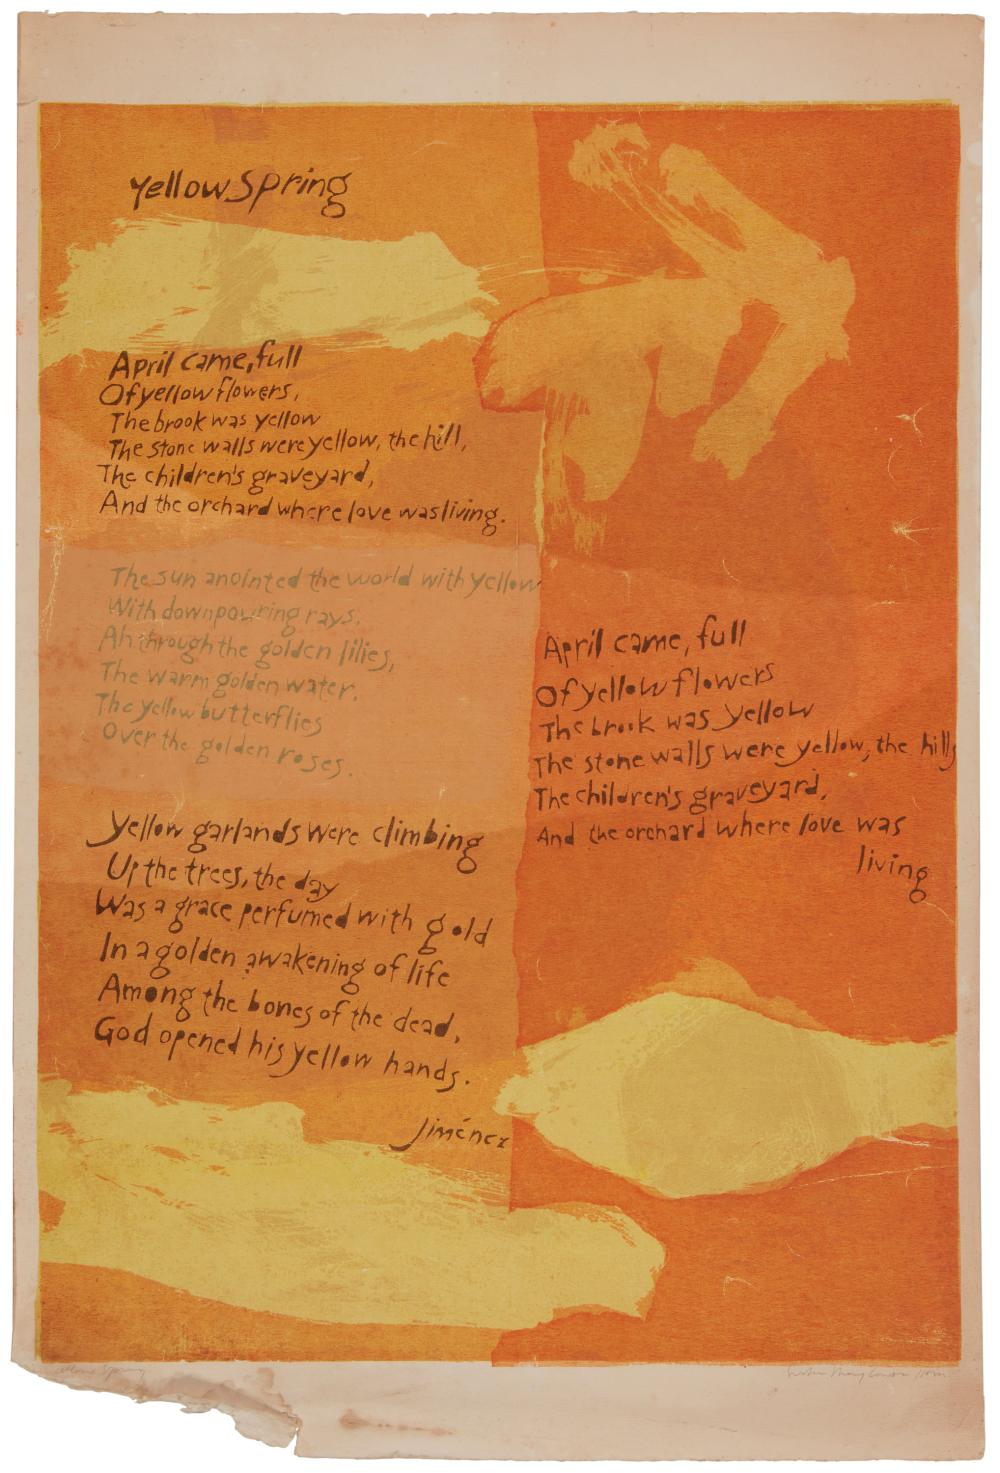 Yellow Spring
April came, full
Of yellow flowers,
The brook was yellow
The stone walls were yellow, the hill,
The children's graveyard,
And the orchard where love was living.
The sun anointed the world with yellow
With downpouring rays.
Ah through the golden lilies,
The warm golden water.
The yellow butterflies
Over the golden roses.
Yellow garlands were climbing
Up the trees, the day
Was a grace perfumed with gold
In a golden awakening of life
Among the bones of the dead,
God opened his yellow hands.
Jiménez
April came, full
Of yellow flowers
The brook was yellow
The stone walls were yellow, the hills
The children's graveyard,
And the orchard where love was
living
Yellow Spring
Sister Mary Corita